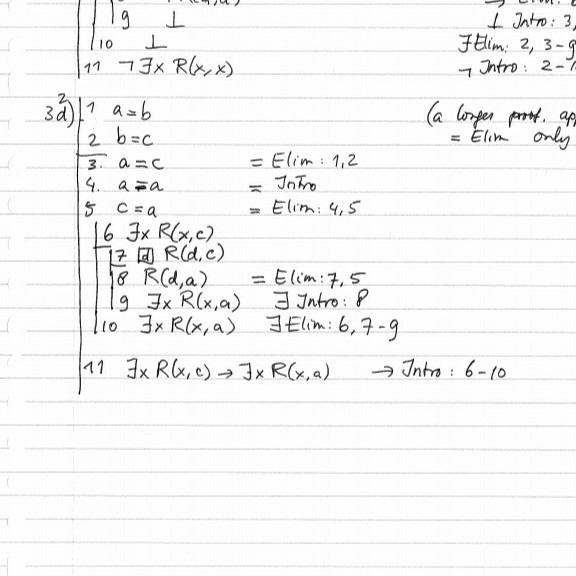 9 ⊥ ⊥ Intro: 3,
10 ⊥ ∃Elim: 2, 3-9
11 ¬∃x R(x,x) ¬ Intro: 2-1
3d)² 1 a=b (a longer proof, ap
2 b=c = Elim only
3. a=c = Elim: 1,2
4. a=a = Intro
5 c=a = Elim: 4,5
6 ∃x R(x,c)
7 d R(d,c)
8 R(d,a) = Elim: 7,5
9 ∃x R(x,a) ∃ Intro: 8
10 ∃x R(x,a) ∃Elim: 6, 7-9
11 ∃x R(x,c) → ∃x R(x,a) → Intro: 6-10